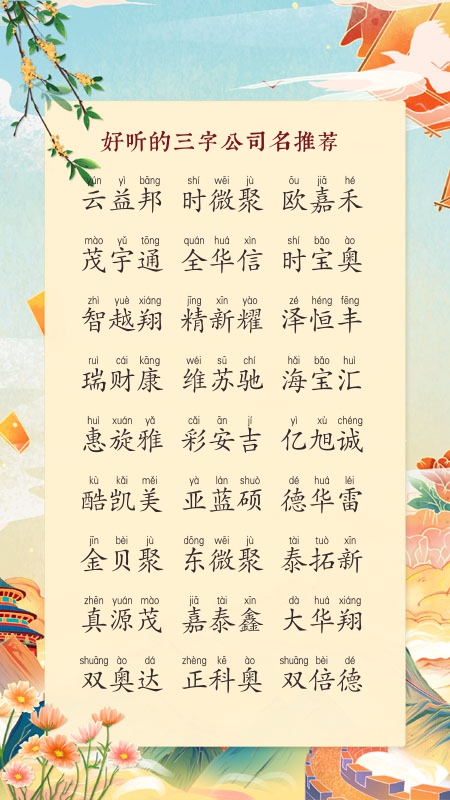 好听的三字公司名推荐
yún yì bāng shí wēi jù ōu jiā hé
云益邦 时微聚 欧嘉禾
mào yǔ tōng quán huá xìn shí bǎo ào
茂宇通 全华信 时宝奥
zhì yuè xiáng jīng xīn yào zé héng fēng
智越翔 精新耀 泽恒丰
ruì cái kāng wéi sū chí hǎi bǎo huì
瑞财康 维苏驰 海宝汇
huì xuán yǎ cǎi ān jí yì xù chéng
惠旋雅 彩安吉 亿旭诚
kù kǎi měi yà lán shuò dé huá léi
酷凯美 亚蓝硕 德华雷
jīn bèi jù dōng wēi jù tài tuò xīn
金贝聚 东微聚 泰拓新
zhēn yuán mào jiā tài xīn dà huá xiáng
真源茂 嘉泰鑫 大华翔
shuāng ào dá zhèng kē ào shuāng bèi dé
双奥达 正科奥 双倍德